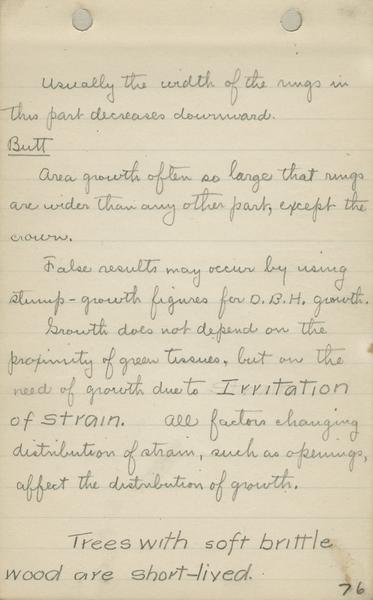 Usually the width of the rings in
this part decreases downward.
Butt
Area growth often so large that rings
are wider than any other part, except the
crown.
False results may occur by using
stump-growth figures for D.B.H. growth.
Growth does not depend on the
proximity of green tissues, but on the
need of growth due to Irritation
of strain. All factors changing
distribution of strain, such as openings,
affect the distribution of growth.
Trees with soft brittle
wood are short-lived.
76